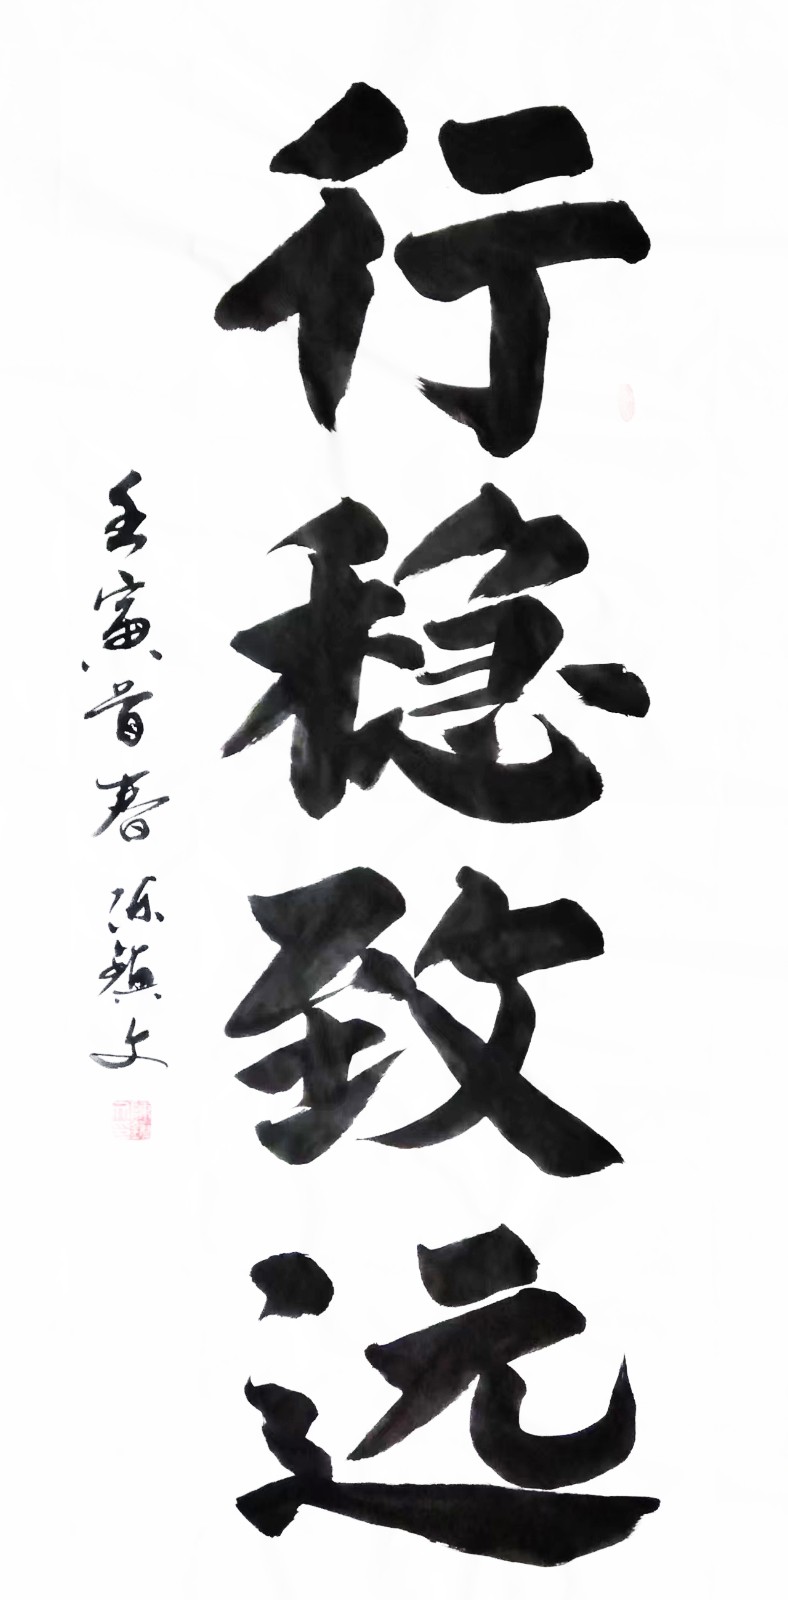 行稳致远
壬寅首春陈镇文